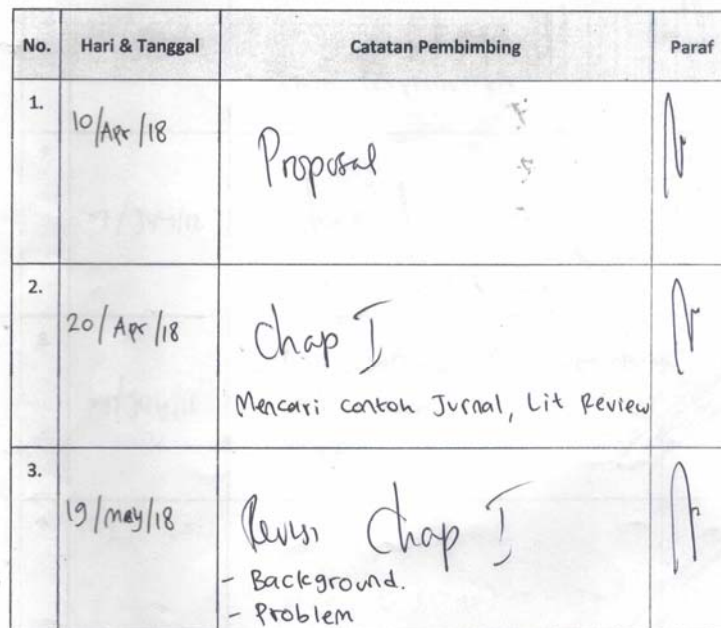 No. Hari & Tanggal Catatan Pembimbing Paraf
1. 10/Apr/18 Proposal
2. 20/Apr/18 Chap I
Mencari contoh Jurnal, Lit Review
3. 19/may/18 Revisi Chap I
- Background.
- Problem